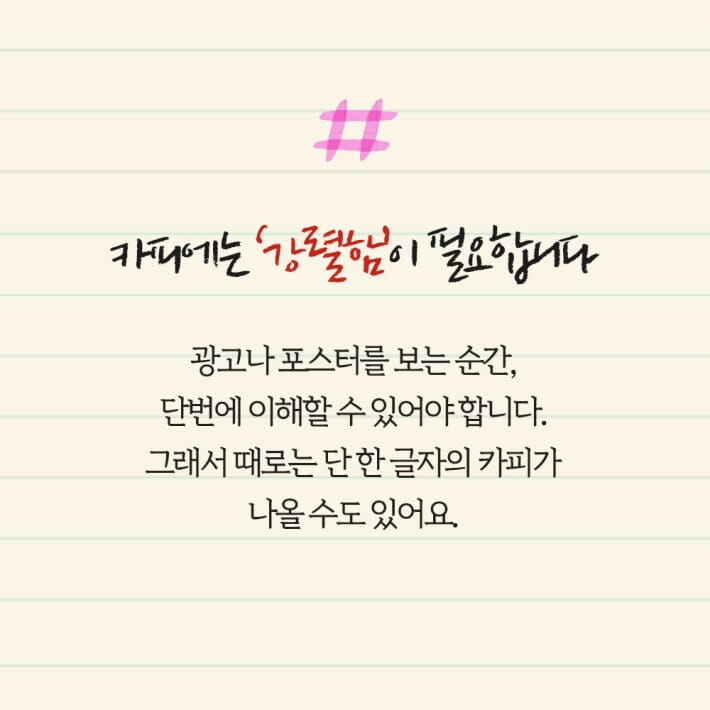 #
카피에는 '강렬함'이 필요합니다
광고나 포스터를 보는 순간,
단번에 이해할 수 있어야 합니다.
그래서 때로는 단 한 글자의 카피가
나올 수도 있어요.